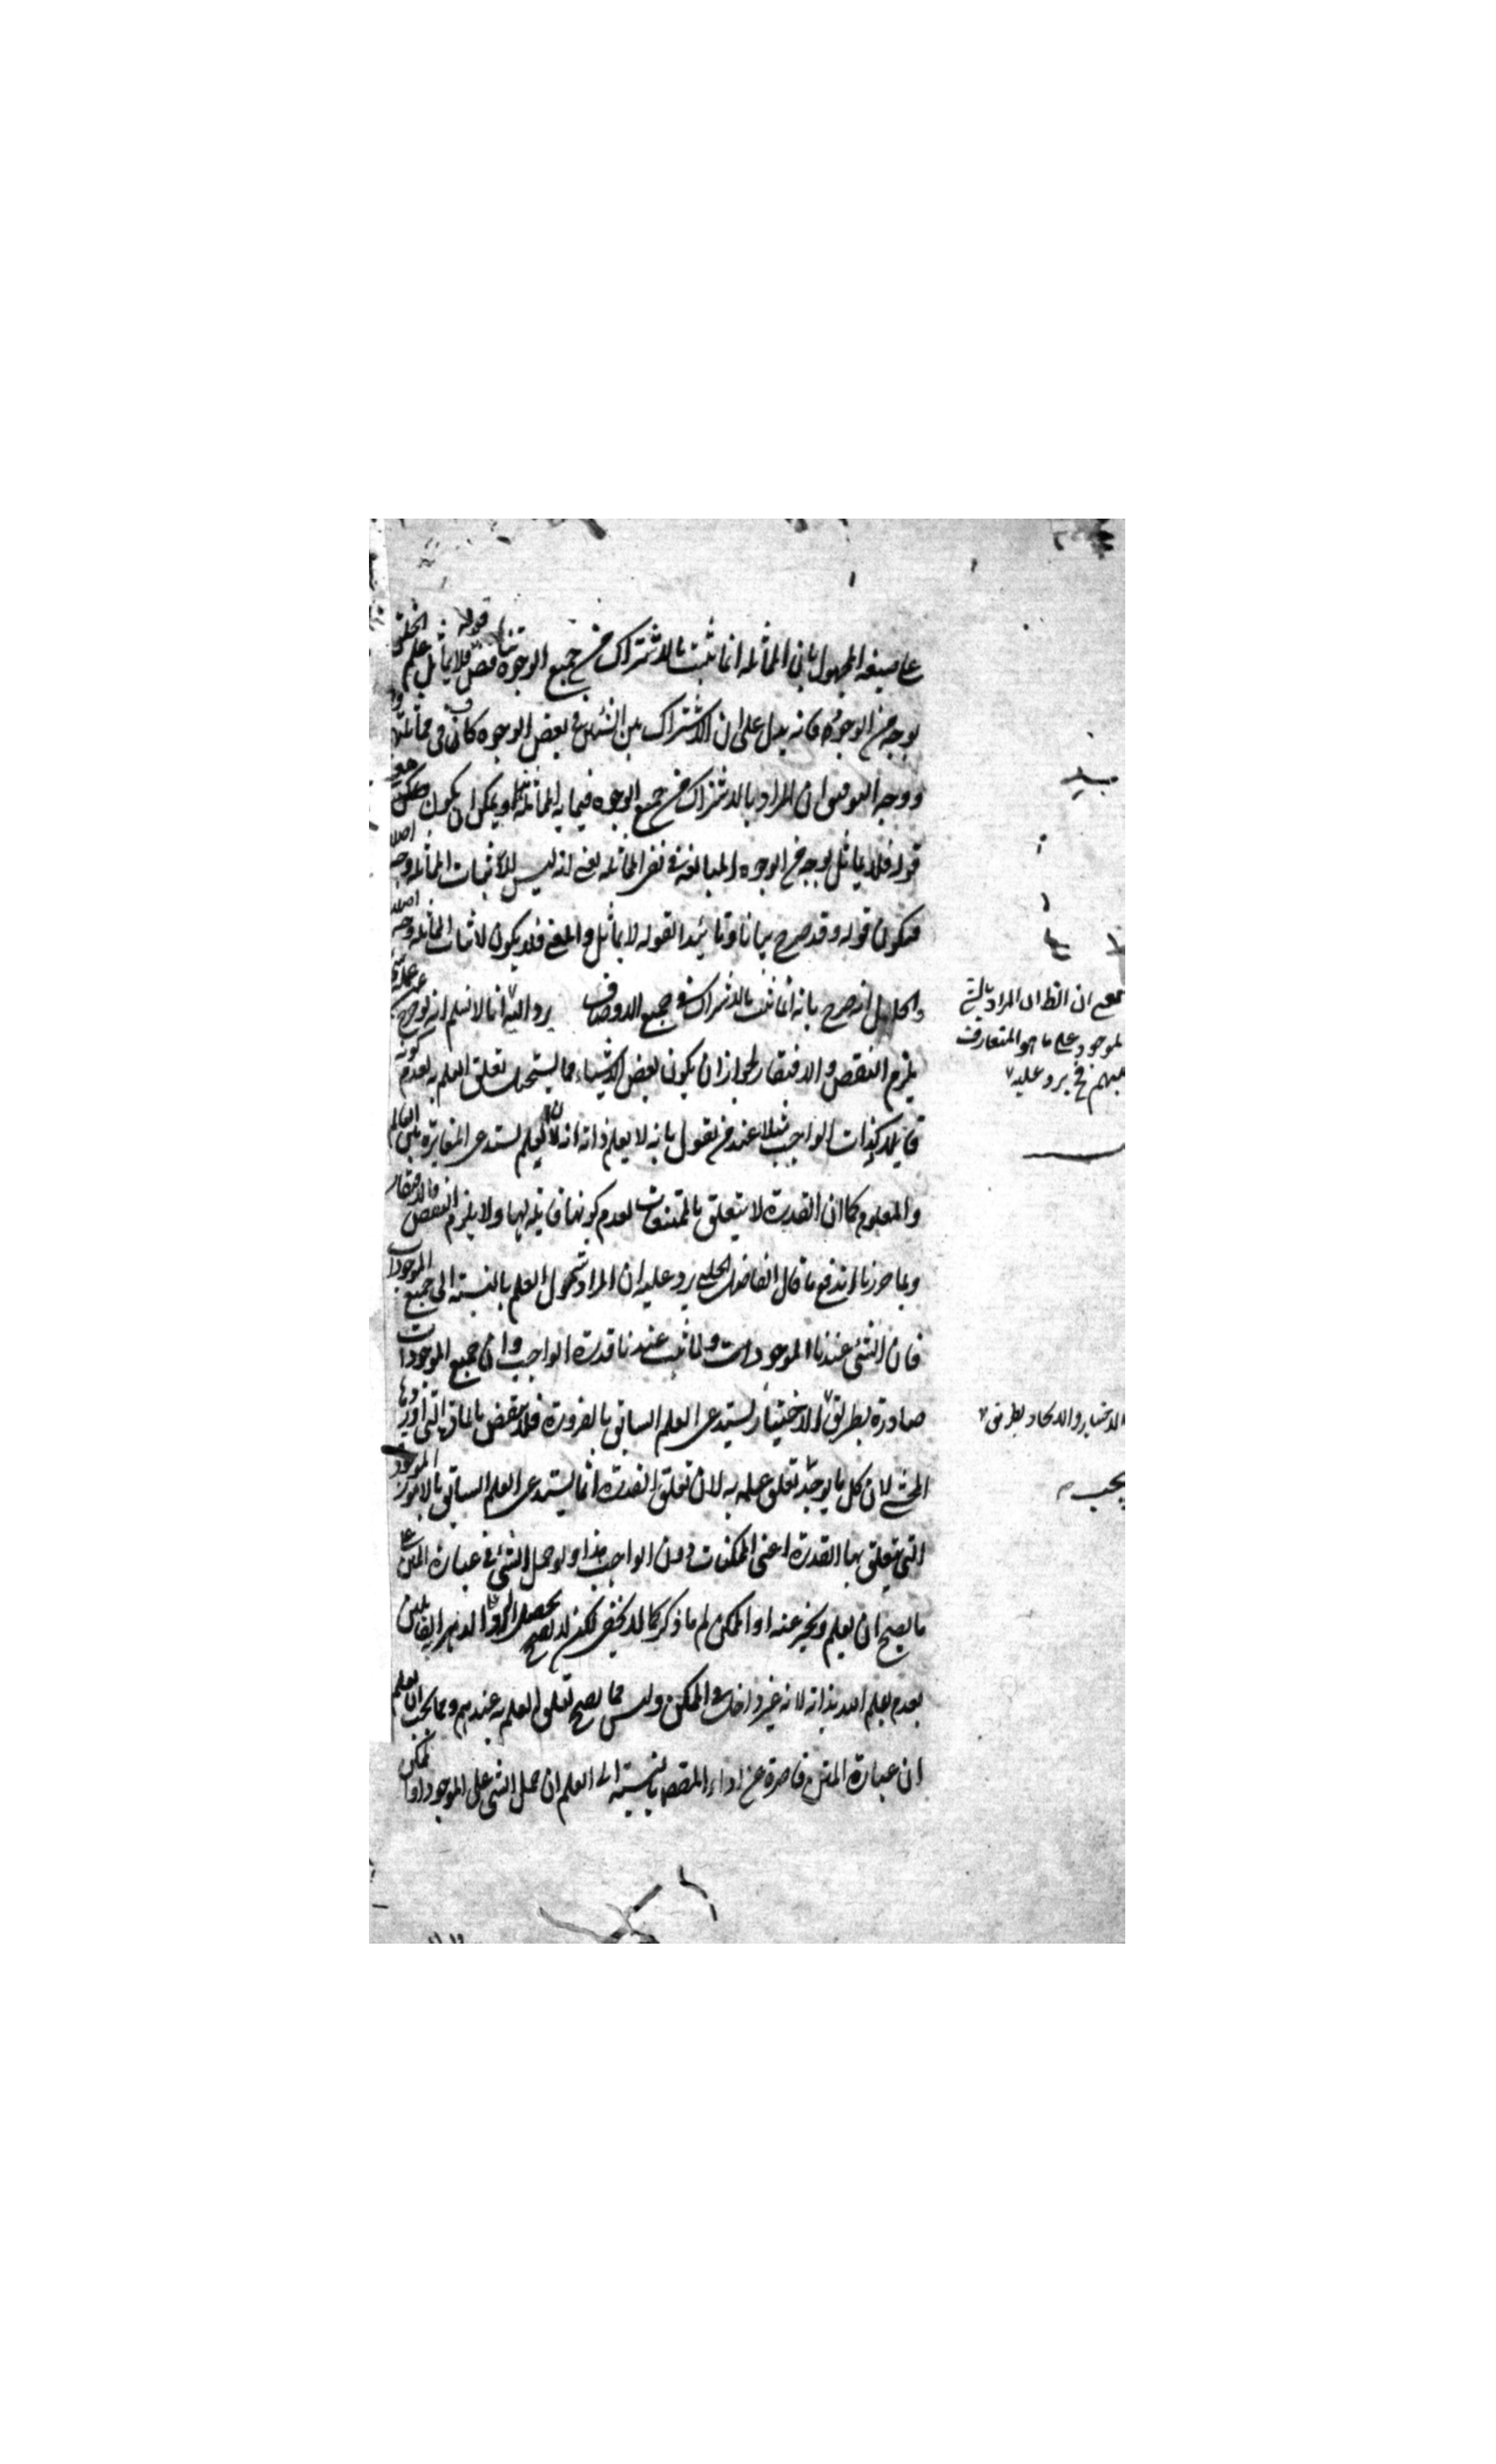 على صيغة المجهول بان المماثلة انما تثبت بالاشتراك في جميع الوجوه تناقض قوله فلا يماثل علم الخلق
بوجه من الوجوه فانه يدل على ان الاشتراك بين الشيئين في بعض الوجوه كاف في مماثلتهما
ووجه التوفيق ان المراد بالاشتراك في جميع الوجوه فيما به المماثلة ويمكن ان يكون
قوله فلا يماثل بوجه من الوجوه المبالغة في نفي المماثلة يعني انه ليس لاثبات المماثلة وجه اصلا
فيكون قوله وقد صرح بيانا وتأييدا لقوله لا يماثل والمعنى فلا يكون لاثبات المماثلة وجه اصلا
والحال انه صرح بانه انما تثبت بالاشتراك في جميع الاوصاف يرد انا لانسلم انه لو خرج
يلزم النقص والافتقار لجواز ان يكون بعض الاشياء مما يستحيل تعلق العلم به لعدم كونه
قابلا كذات الواجب مثلا عند من يقول بانه لا يعلم ذاته لان العلم يستدعي المغايرة بين العالم
والمعلوم كما ان القدرة لا يتعلق بالممتنعات لعدم كونها قابلة لها ولا يلزم النقص والافتقار
وبما حررنا اندفع ما قال الفاضل الجلبي يرد عليه ان المراد شمول العلم بالنسبة الى جميع الموجودات
فان الشيء عندنا الموجودات ولما ثبت عندنا قدرة الواجب وان جميع الموجودات
صادرة بطريق الاختيار يستدعي العلم السابق بالضرورة فلا ينقض بالمادة التي اوردها
المحشي لان كل ما يوجد تعلق علمه به لان تعلق القدرة انما يستدعي العلم السابق بالامور
التي يتعلق بها القدرة اعني الممكنات دون الواجب هذا ولو حمل الشيء في عبارة المتن على
ما يصح ان يعلم ويخبر عنه او الممكن لم ما ذكر كما لا يخفى لكن لا يصح الدهر القائلين
بعدم يعلم الله بذاته لانه غير داخل في الممكن وليس مما يصح تعلق العلم به عندهم ومما يجب ان يعلم
ان عبارة المتن قاصرة عن اداء المقص بالنسبة الى العلم ان حمل الشيء على الموجود او الممكن
ان الظ ان المراد بالشيء
الموجود على ما هو المتعارف
بينهم فح يرد عليه
الاختيار والايجاد بطريق
يجب